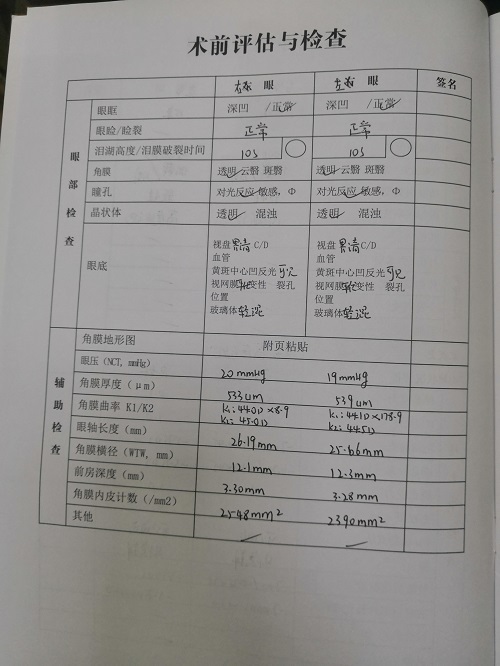 术前评估与检查
右 眼 左 眼 签名
眼部检查
眼眶 深凹 /正常 深凹 /正常
眼睑/睑裂 正常 正常
泪湖高度/泪膜破裂时间 10s 10s
角膜 透明 云翳 斑翳 透明 云翳 斑翳
瞳孔 对光反应 敏感, Φ 对光反应 敏感, Φ
晶状体 透明 混浊 透明 混浊
眼底
视盘 界清 C/D 视盘 界清 C/D
血管 血管
黄斑中心凹反光 可见 黄斑中心凹反光 可见
视网膜 变性 裂孔 视网膜 变性 裂孔
位置 位置
玻璃体 轻混 玻璃体 轻混
辅助检查
角膜地形图 附页粘贴
眼压(NCT, mmHg) 20mmHg 19mmHg
角膜厚度(μm) 533um 539um
角膜曲率 K1/K2 K1: 44.01D×8.9 K1: 44.1D×178.9
K2: 45.01D K2: 44.51D
眼轴长度(mm) 26.19mm 25.66mm
角膜横径(WTW, mm) 12.1mm 12.3mm
前房深度(mm) 3.30mm 3.28mm
角膜内皮计数(/mm2) 2548mm² 2390mm²
其他